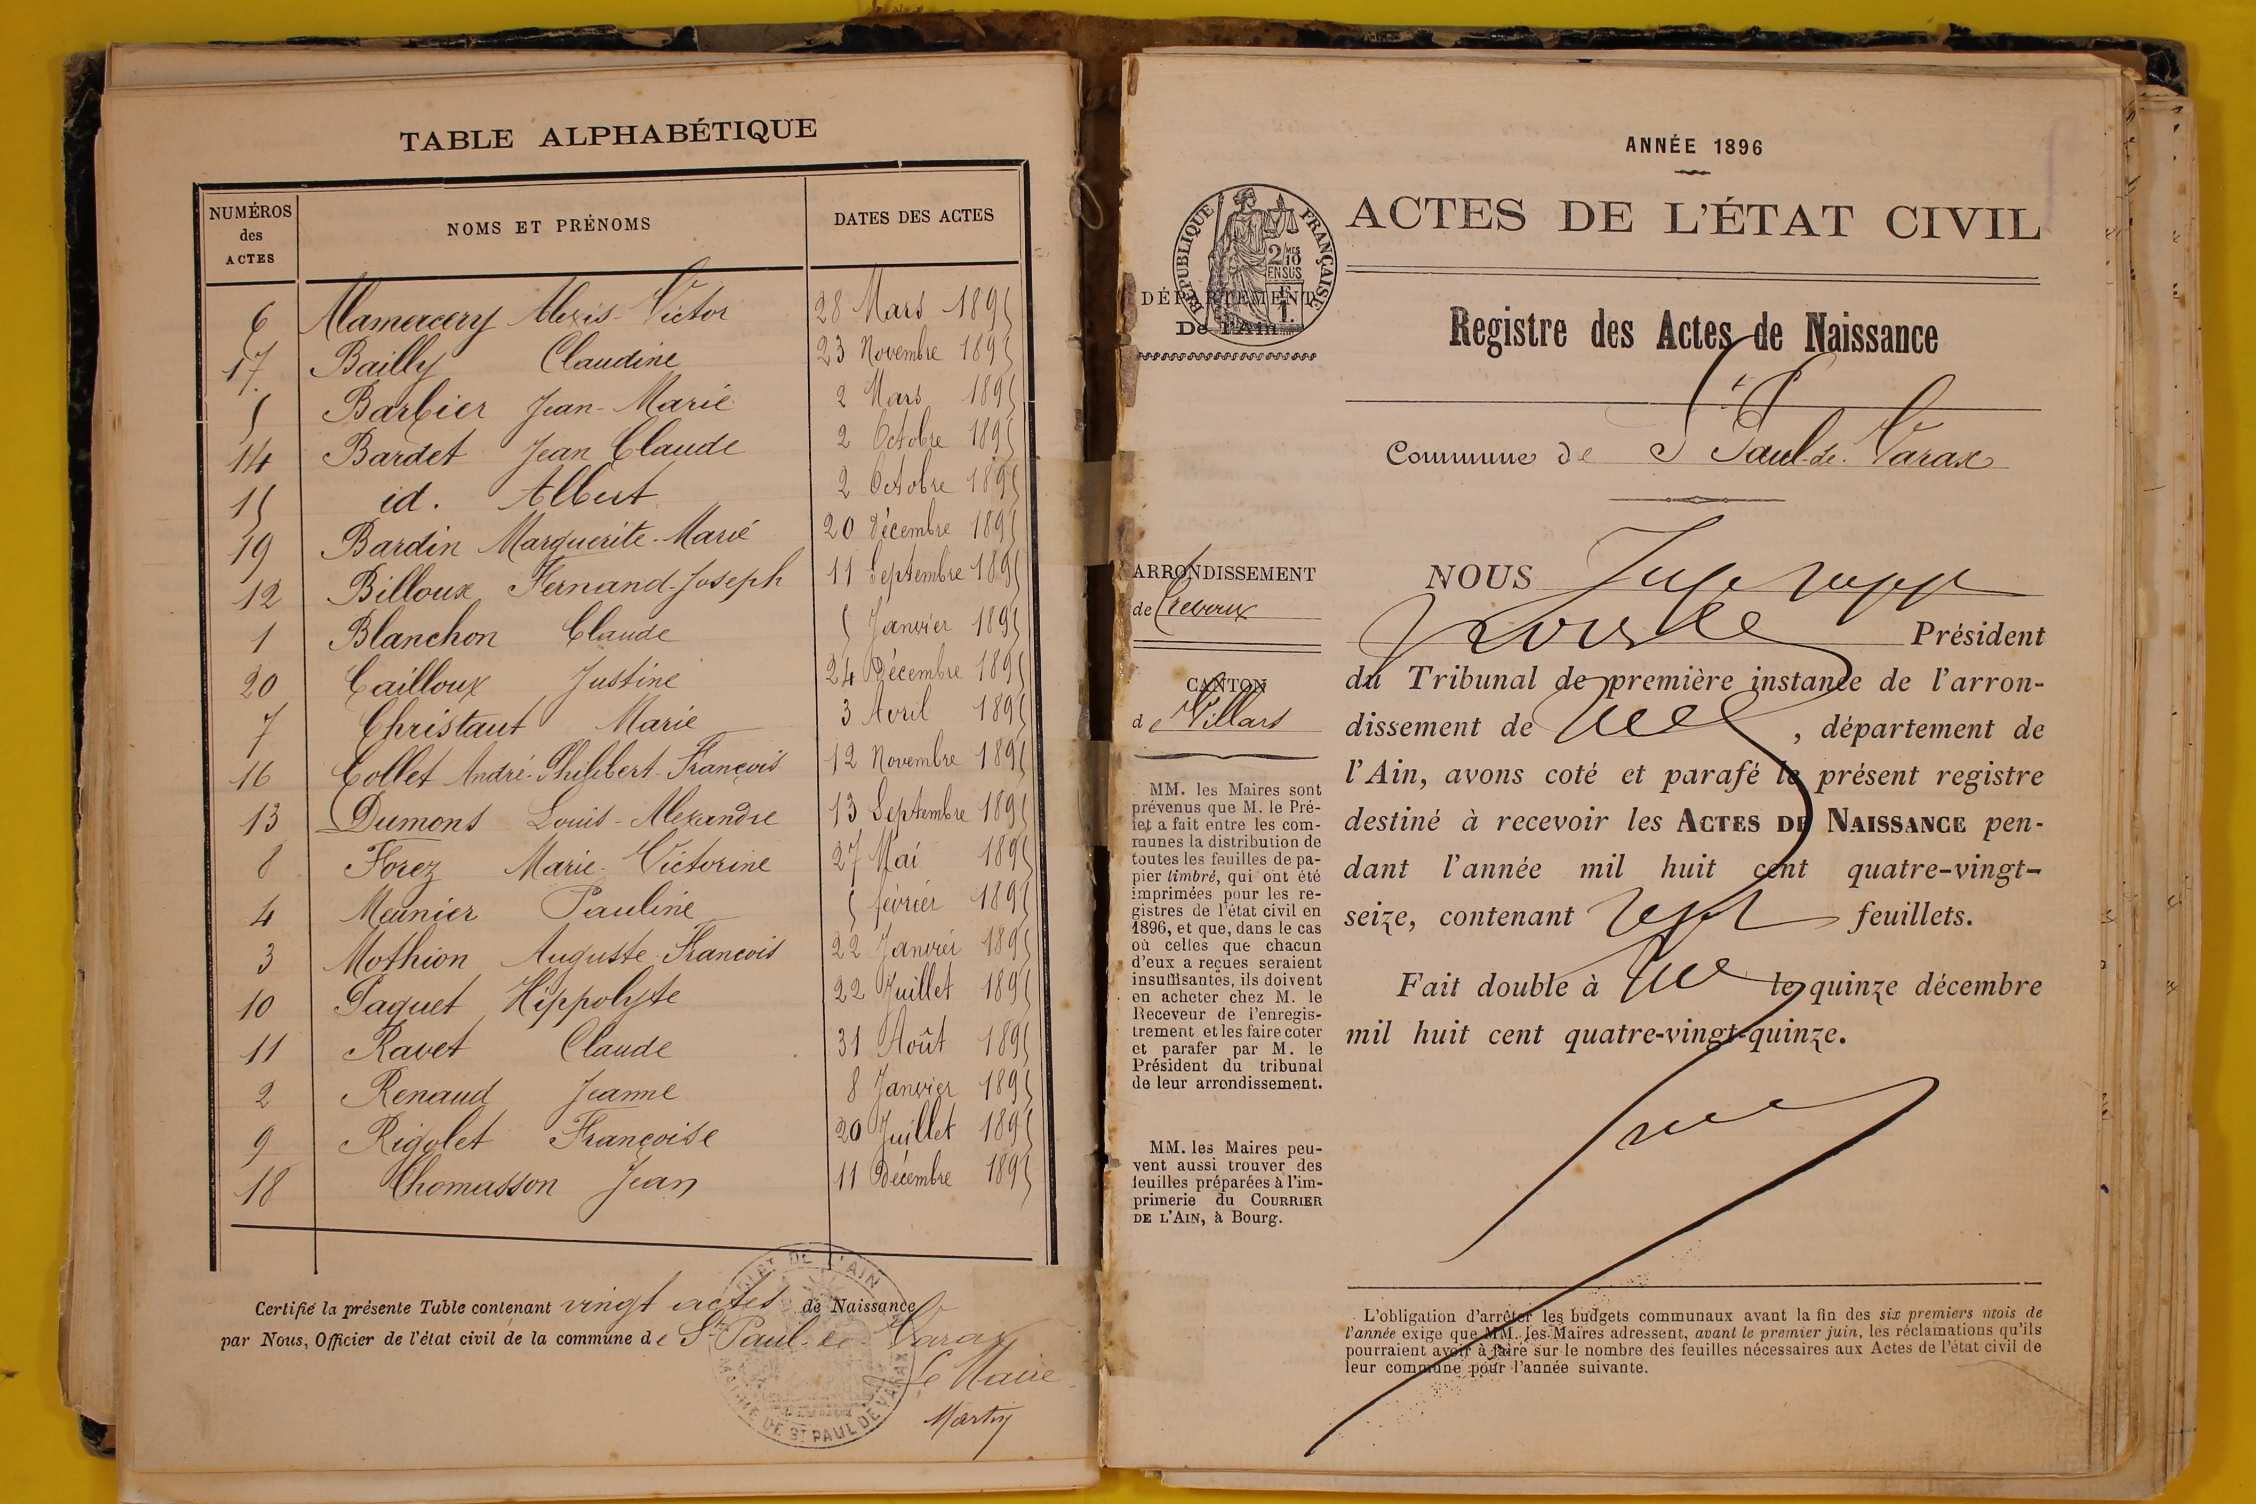 TABLE ALPHABÉTIQUE
NUMÉROS des ACTES
NOMS ET PRÉNOMS
DATES DES ACTES
6 Mamercery Alexis-Victor 28 Mars 1895
17 Bailly Claudine 23 Novembre 1895
5 Barbier Jean-Marie 2 Mars 1895
14 Bardet Jean Claude 2 Octobre 1895
15 id. Albert 2 Octobre 1895
19 Bardin Marguerite-Marie 20 Décembre 1895
12 Billoux Fernand-Joseph 11 Septembre 1895
1 Blanchon Claude 5 Janvier 1895
20 Cailloux Justine 24 Décembre 1895
7 Christaut Marie 3 Avril 1895
16 Collet André-Philibert-François 12 Novembre 1895
13 Dumons Louis-Alexandre 13 Septembre 1895
8 Forez Marie-Victorine 27 Mai 1895
4 Meunier Pauline 5 février 1895
3 Mothion Auguste-François 22 Janvier 1895
10 Paquet Hippolyte 22 Juillet 1895
11 Ravet Claude 31 Août 1895
2 Renaud Jeanne 8 Janvier 1895
9 Rigolet Françoise 20 Juillet 1895
18 Thomasson Jean 11 Décembre 1895
Certifié la présente Table contenant vingt actes de Naissance
par Nous, Officier de l'état civil de la commune de St Paul-de-Varax
Le Maire
Martin
MAIRIE DE ST PAUL DE VARAX
DE L'AIN
ANNÉE 1896
ACTES DE L'ÉTAT CIVIL
RÉPUBLIQUE FRANÇAISE
2/10 MES
EN SUS
1.
DÉPARTEMENT
De l'Ain
Registre des Actes de Naissance
Commune de St Paul-de-Varax
ARRONDISSEMENT
de Trévoux
CANTON
de Villars
MM. les Maires sont
prévenus que M. le Pré-
fet a fait entre les com-
munes la distribution de
toutes les feuilles de pa-
pier timbré, qui ont été
imprimées pour les re-
gistres de l'état civil en
1896, et que, dans le cas
où celles que chacun
d'eux a reçues seraient
insuffisantes, ils doivent
en acheter chez M. le
Receveur de l'enregis-
trement et les faire coter
et parafer par M. le
Président du tribunal
de leur arrondissement.
MM. les Maires peu-
vent aussi trouver des
feuilles préparées à l'im-
primerie du COURRIER
DE L'AIN, à Bourg.
NOUS
Président
du Tribunal de première instance de l'arron-
dissement de , département de
l'Ain, avons coté et parafé le présent registre
destiné à recevoir les ACTES DE NAISSANCE pen-
dant l'année mil huit cent quatre-vingt-
seize, contenant sept feuillets.
Fait double à le quinze décembre
mil huit cent quatre-vingt-quinze.
L'obligation d'arrêter les budgets communaux avant la fin des six premiers mois de
l'année exige que MM. les Maires adressent, avant le premier juin, les réclamations qu'ils
pourraient avoir à faire sur le nombre des feuilles nécessaires aux Actes de l'état civil de
leur commune pour l'année suivante.